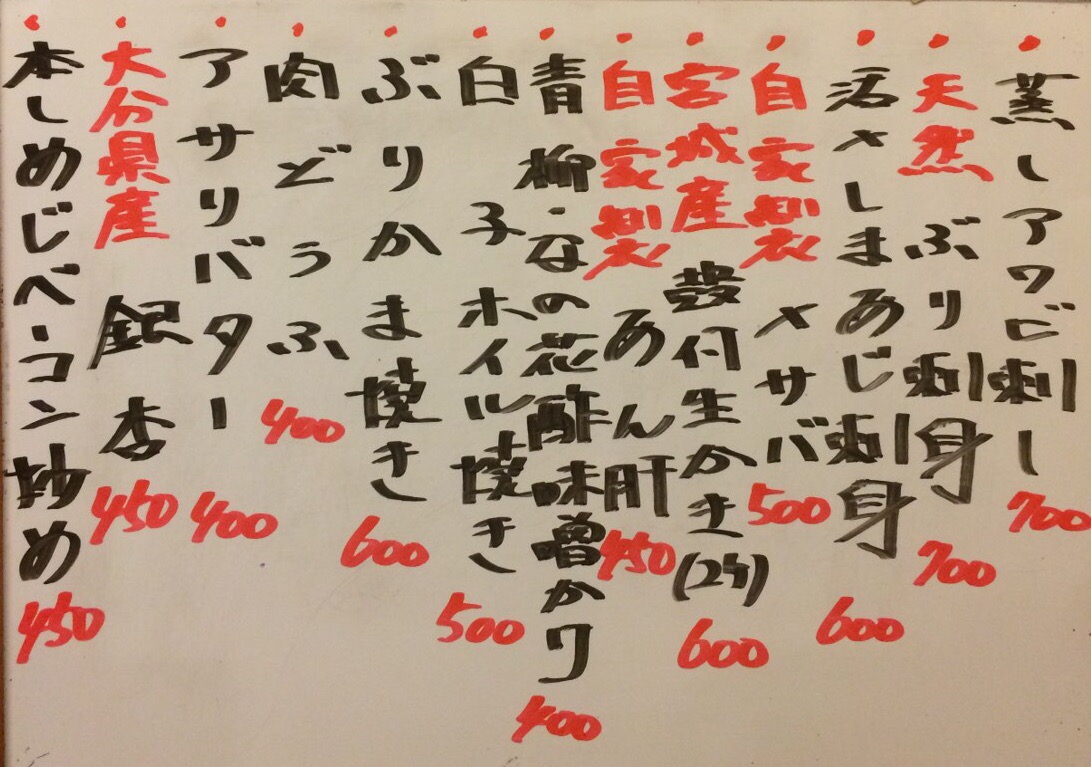 ・蒸しアワビ刺し 700
・天然 ぶり刺身 700
・活〆しまあじ刺身 600
・自家製 〆サバ 500
・宮城産 殻付生かき(2ケ) 600
・自家製 あん肝 450
・青柳・なの花酢味噌かけ 400
・白子ホイル焼き 500
・ぶりかま焼き 600
・肉どうふ 400
・アサリバター 400
・大分県産 銀杏 450
・本しめじベーコン炒め 450